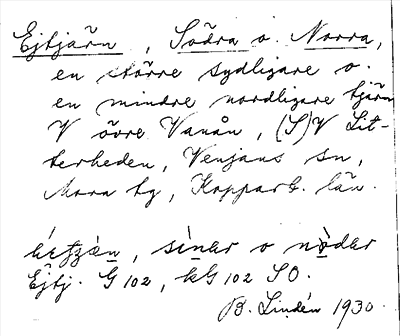 Ejtjärn, Södra o. Norra,
en större sydligare o.
en mindre nordligare tjärn
V övre Vanån, (S)V Lit-
terheden, Venjans sn,
Mora tg, Kopparb. län.
sìnar o nòdar
Ejtj. G 102, kG 102 SO.
B. Lindén 1930.